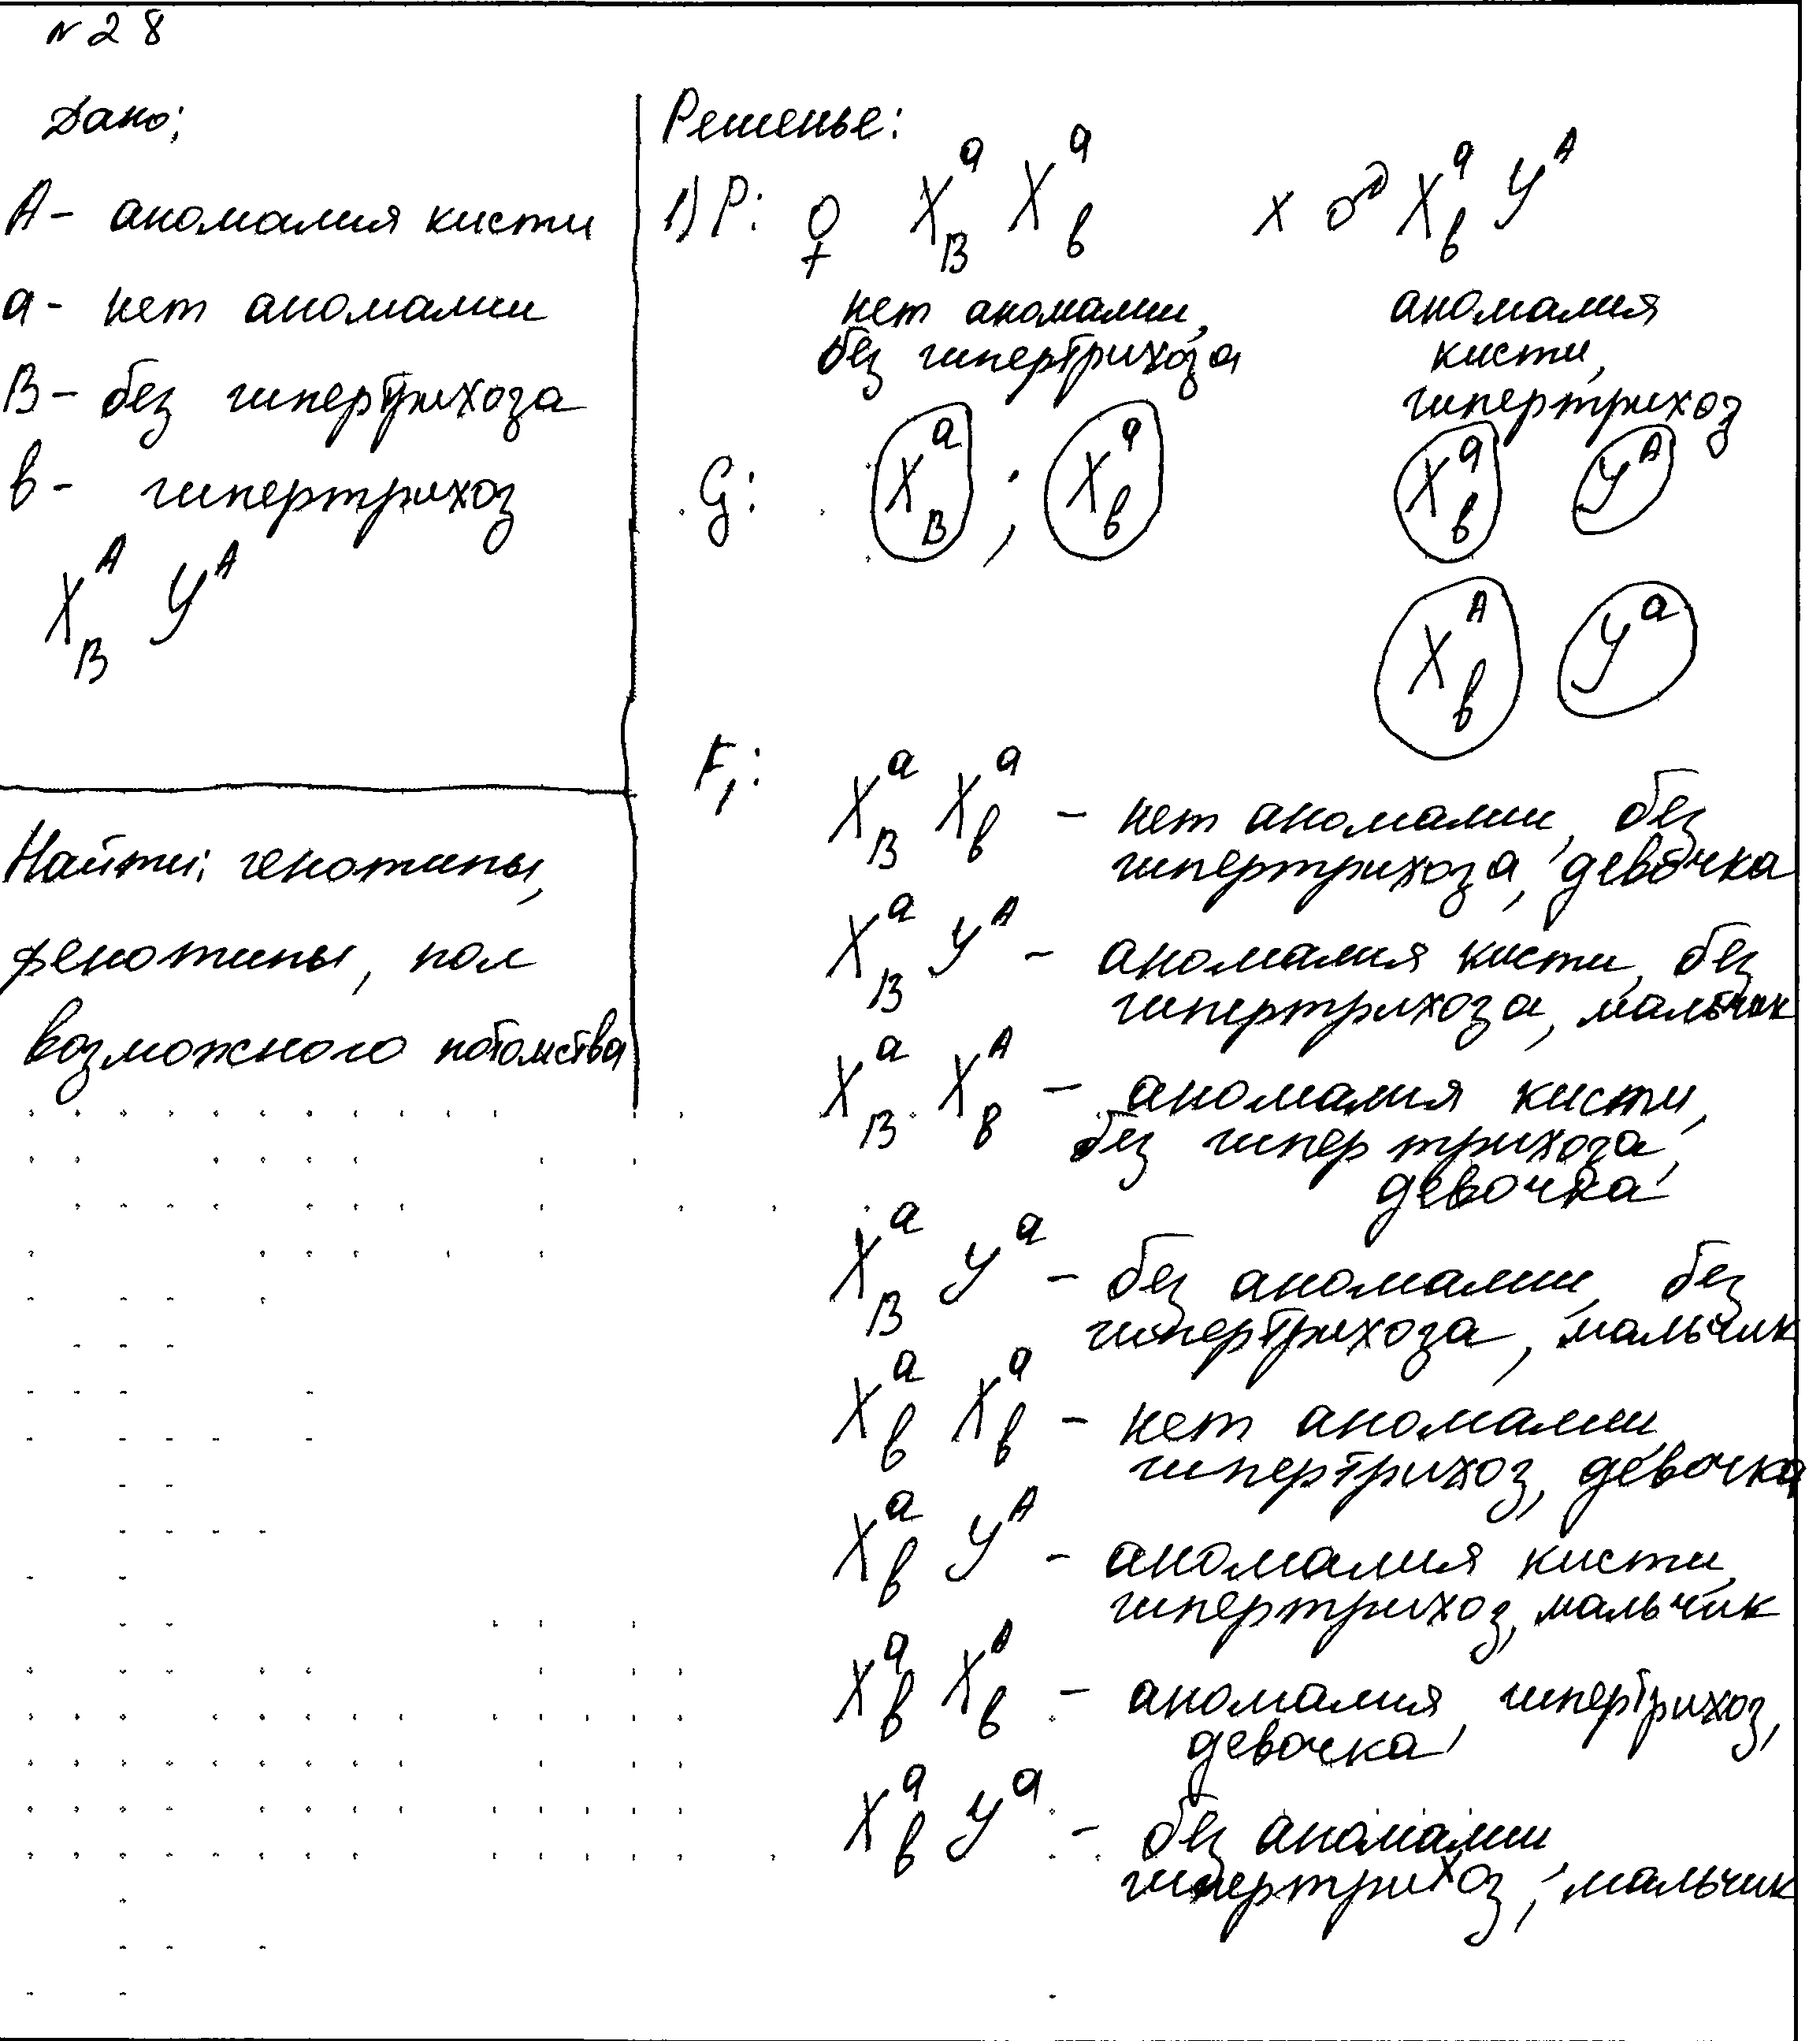 N 28
Дано;
А - аномалия кисти
а - нет аномалии
В - без гипертрихоза
в - гипертрихоз
X^A_B Y^A
Найти: генотипы,
фенотипы, пол
возможного потомства
Решенье:
1) P: ♀ X^a_B X^a_в х ♂ X^a_в Y^A
нет аномалии, аномалия
без гипертрихоза кисти,
гипертрихоз
G: X^a_B ; X^a_в X^a_в Y^A
X^A_в Y^a
F₁: X^a_B X^a_в - нет аномалии, без
гипертрихоза, девочка
X^a_B Y^A - аномалия кисти, без
гипертрихоза, мальчик
X^a_B X^A_в - аномалия кисти,
без гипертрихоза,
девочка
X^a_B Y^a - без аномалии, без
гипертрихоза, мальчик
X^a_в X^a_в - нет аномалии,
гипертрихоз, девочка
X^a_в Y^A - аномалия кисти,
гипертрихоз, мальчик
X^a_в X^A_в - аномалия, гипертрихоз,
девочка
X^a_в Y^a - без аномалии,
гипертрихоз, мальчик